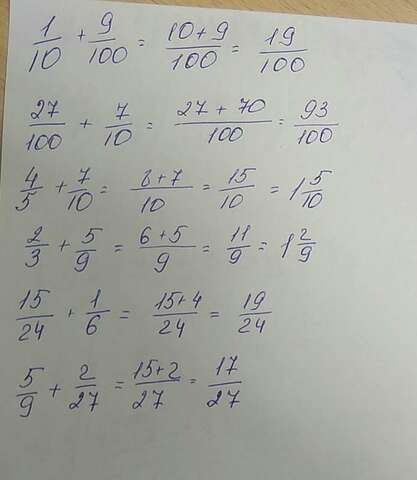 1/10 + 9/100 = 10+9/100 = 19/100
27/100 + 7/10 = 27+70/100 = 93/100
4/5 + 7/10 = 8+7/10 = 15/10 = 1 5/10
2/3 + 5/9 = 6+5/9 = 11/9 = 1 2/9
15/24 + 1/6 = 15+4/24 = 19/24
5/9 + 2/27 = 15+2/27 = 17/27